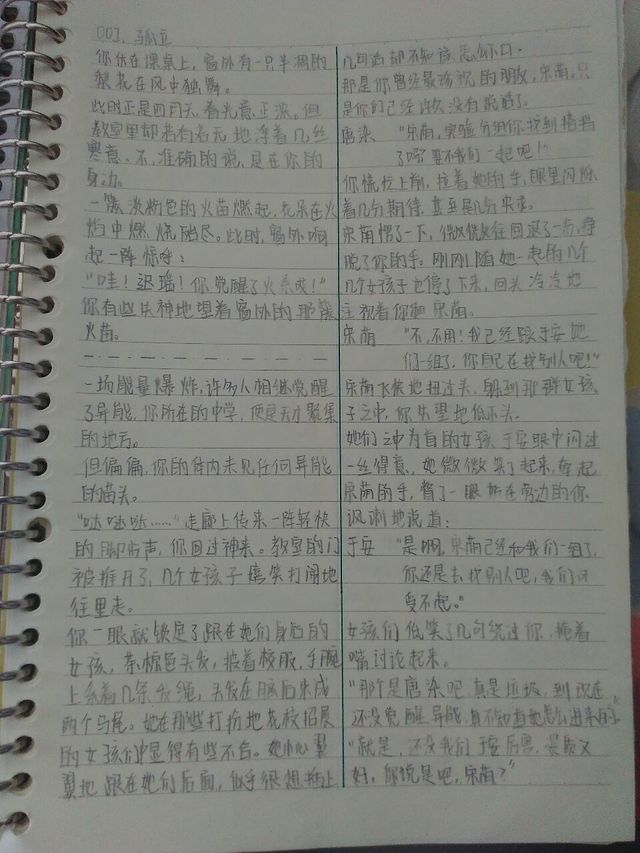 001. 孤立
你伏在课桌上，窗外有一只半凋的
梨花在风中独舞。
此时正是四月天，春光意正浓，但
教室里却若有若无地浮着几丝
寒意。不，准确的说，是在你的
身边。
一簇淡粉色的火苗燃起，花朵在火
焰中燃烧殆尽。此时，窗外响
起一阵惊呼：
"哇！迟瑶！你觉醒了火系哎！"
你有些失神地望着窗外的那簇
火苗。
一场能量爆炸，许多人相继觉醒
了异能，你所在的中学，便是天才聚集
的地方。
但偏偏，你的体内未见任何异能
的苗头。
"哒哒哒……"走廊上传来一阵轻快
的脚步声，你回过神来。教室的门
被推开了，几个女孩子嬉笑打闹地
往里走。
你一眼就锁定了跟在她们身后的
女孩，茶棕色头发，披着校服，手腕
上系着几条发绳，头发在脑后束成
两个马尾。她在那些打扮地花枝招展
的女孩们中显得有些不合。她小心翼
翼地跟在她们后面，似乎很想插上
几句话却不知该怎么开口。
那是你曾经最珍视的朋友，宋荫。只
是你们已经许久没有说话了。
唐染 "宋荫，实验分组你找到搭档
了吗？要不我们一起吧！"
你慌忙上前，拉着她的手，眼里闪烁
着几分期待，甚至是几分哀求。
宋荫愣了一下，微微向后回退了一步，挣
脱了你的手。刚刚随她一起的几个
几个女孩子也停了下来，回头冷冷地
注视着你和宋荫。
宋荫 "不，不用！我已经跟于安她
们一组了，你自己在找别人吧！"
宋荫飞快地扭过头，躲到那群女孩
子之中，你失望地低下头。
她们之中为首的女孩，于安眼中闪过
一丝得意，她微微笑了起来，牵起
宋荫的手，瞥了一眼站在旁边的你
讽刺地说道：
于安 "是啊，宋荫已经和我们一组了，
你还是去找别人吧，我们可
受不起。"
女孩们低笑了几句绕过你，掩着
嘴讨论起来。
"那个是唐染吧，真是垃圾，到现在
还没觉醒异能，真不知道她怎么进来的。"
"就是，还没我们于安厉害，要质又
好，你说是吧，宋荫？"